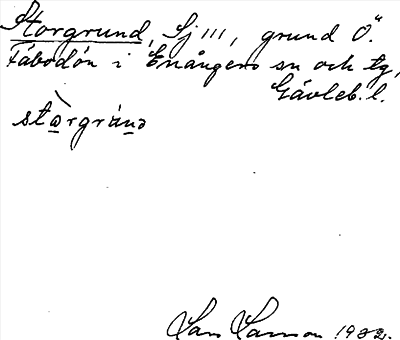 Storgrund, Sj III, grund Ö.
Fäbodön i Enångers sn och tg,
Gävleb. l.
stòrgrúnd
Lars Larsson 1932.